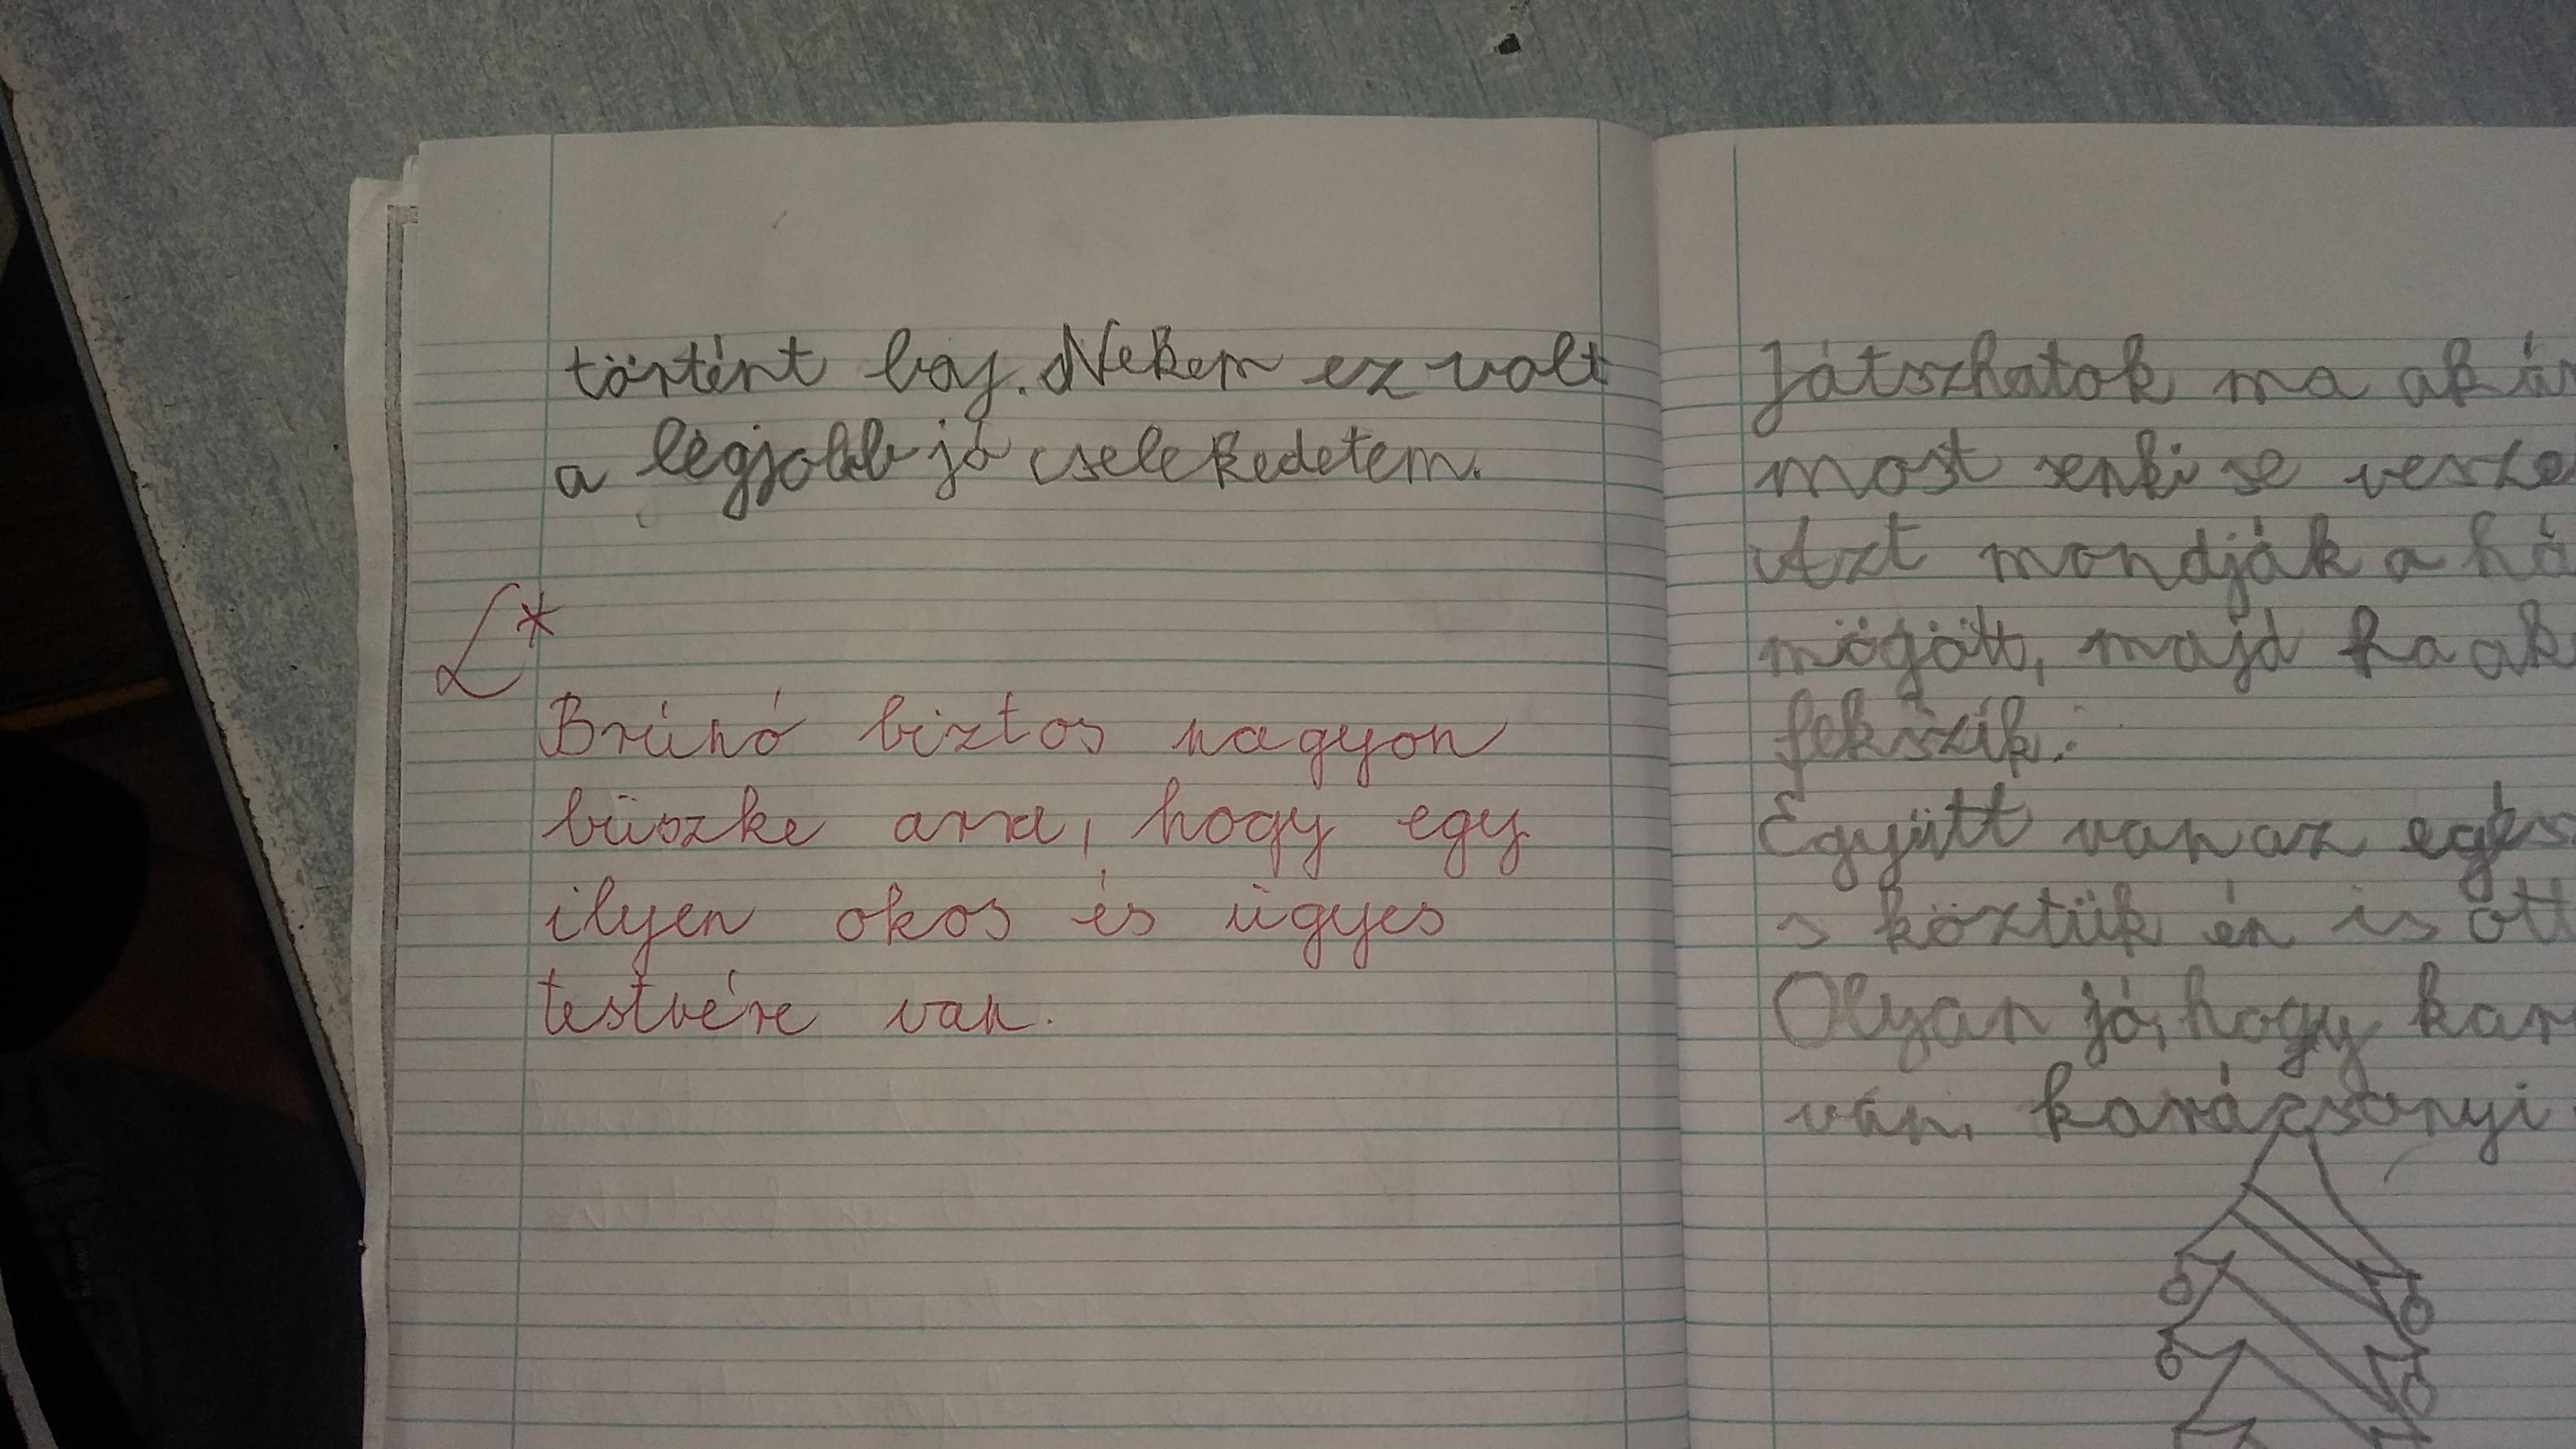 történt baj. Nekem ez volt
a legjobb jó cselekedetem.
L*
Brúnó biztos nagyon
büszke arra, hogy egy
ilyen okos és ügyes
testvére van.
Játszhatok ma akár
most senki se vesze
Azt mondják a há
mögött, majd ha ak
fekszik.
Együtt van az egés
s köztük én is ott
Olyan jó, hogy kar
van, karácsonyi